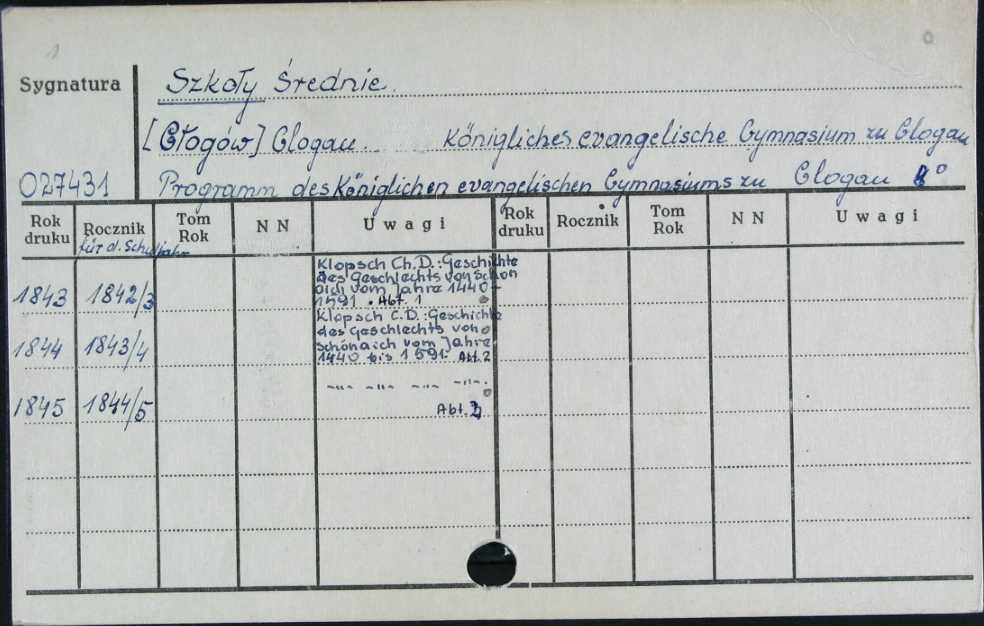 1
Sygnatura
Szkoły Średnie.
[Głogów] Glogau. Königliches evangelische Gymnasium zu Glogau
027431
Programm des Königlichen evangelischen Gymnasiums zu Glogau 8°
Rok druku
Rocznik
für d. Schuljahr
Tom Rok
N N
Uwagi
Rok druku
Rocznik
Tom Rok
N N
Uwagi
1843 1842/3
Klopsch Ch.D.: Geschichte
des Geschlechts von Schön
aich vom Jahre 1440-
1591. Abt. 1
1844 1843/4
Klopsch C.D.: Geschichte
des Geschlechts von
Schönaich vom Jahre
1440 bis 1591. Abt. 2
1845 1844/5
-"- -"- -"- -"-.
Abt. 3